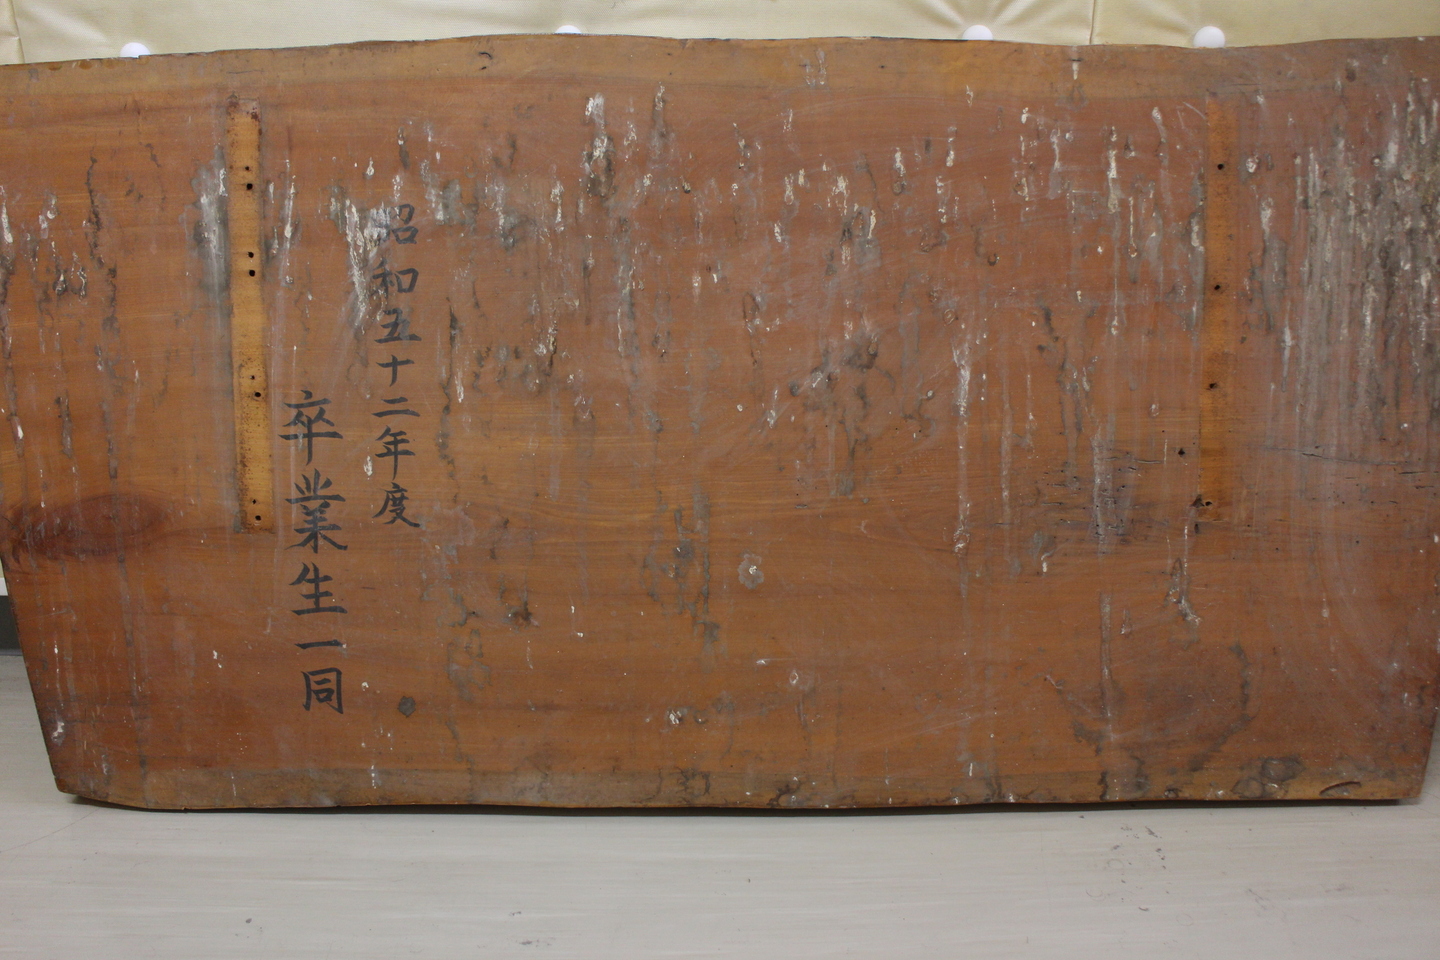 昭和五十二年度
卒業生一同